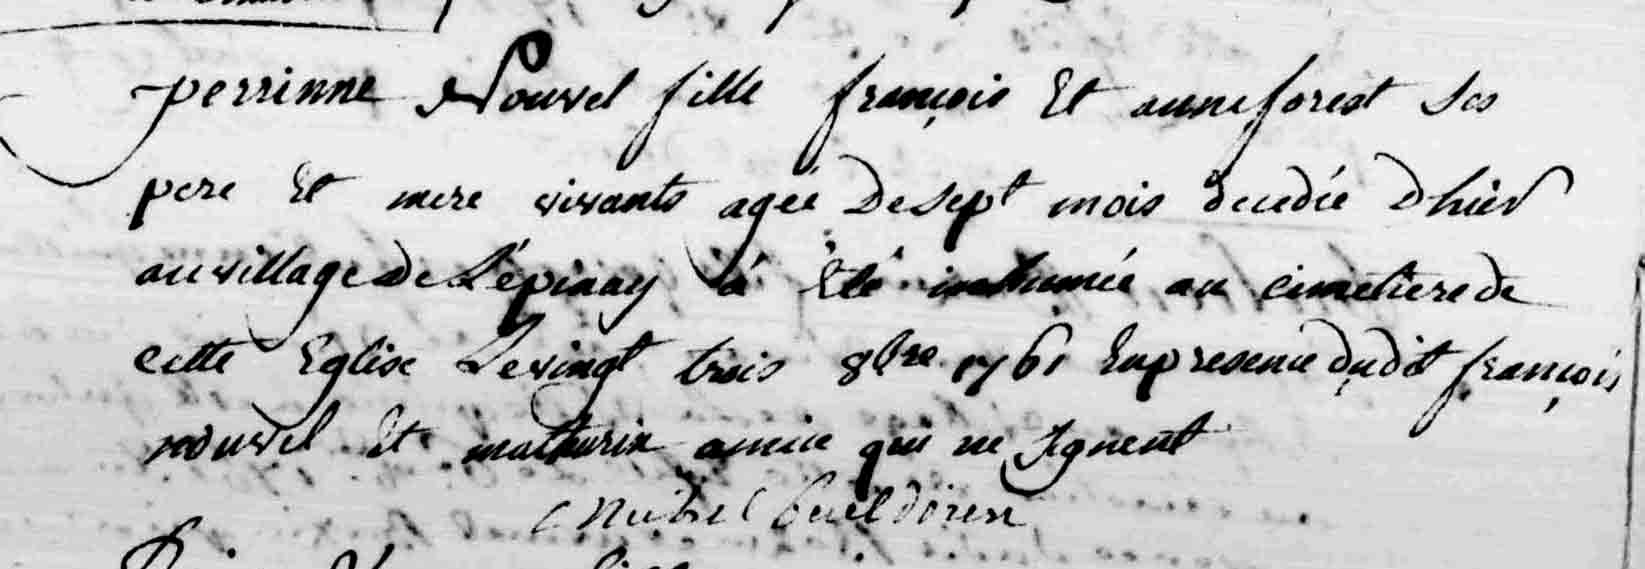 perrinne Nouvel fille françois Et anne forest ses
pere Et mere vivants ageé De sept mois decedée D'hier
au village de L'épinay á Eté inhumée au cimetiere de
cette Eglise Le vingt trois 8bre 1761 En presence dudit françois
nouvel Et mathurin amice qui ne signent